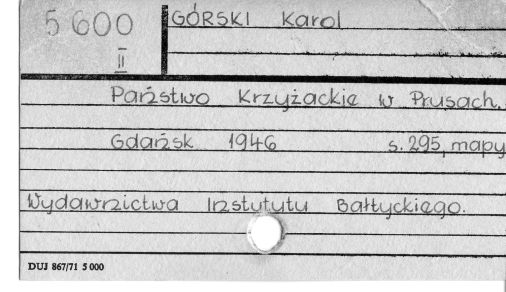 5600 GÓRSKI Karol
II
Państwo Krzyżackie w Prusach.
Gdańsk 1946 s.295, mapy
Wydawnictwa Instytutu Bałtyckiego.
DUJ 867/71 5 000